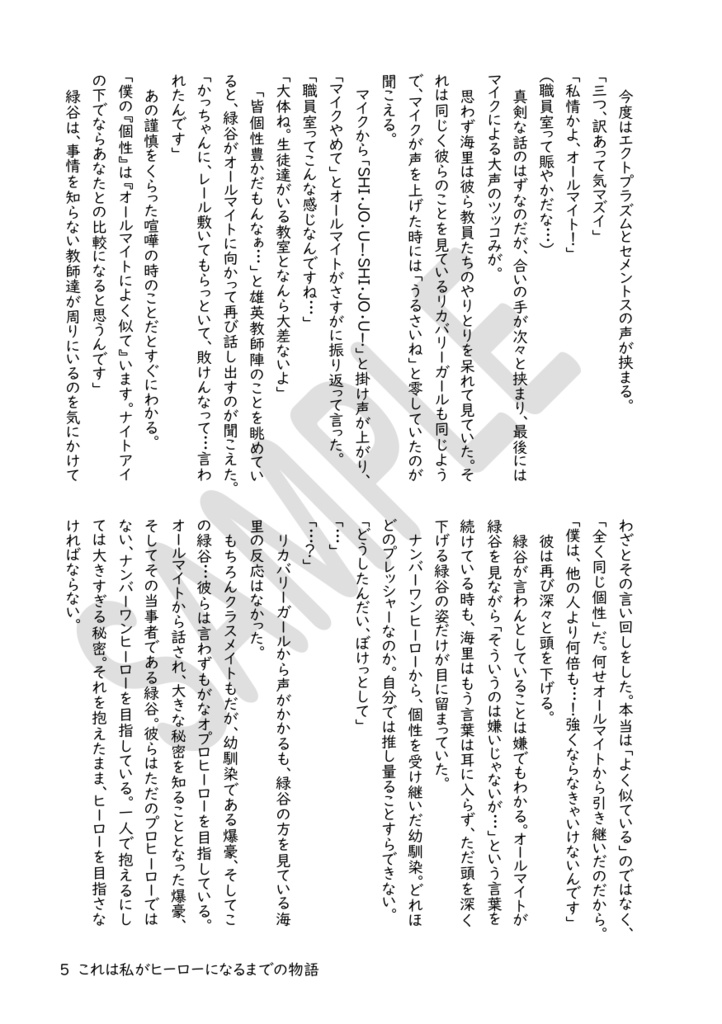 今度はエクトプラズムとセメントスの声が挟まる。
「三つ、訳あって気マズイ」
「私情かよ、オールマイト！」
(職員室って賑やかだな…)
真剣な話のはずなのだが、合いの手が次々と挟まり、最後には
マイクによる大声のツッコみが。
思わず海里は彼ら教員たちのやりとりを呆れて見ていた。そ
れは同じく彼らのことを見ているリカバリーガールも同じよう
で、マイクが声を上げた時には「うるさいね」と零していたのが
聞こえる。
マイクから「SHI・JO・U！SHI・JO・U！」と掛け声が上がり、
「マイクやめて」とオールマイトがさすがに振り返って言った。
「職員室ってこんな感じなんですね…」
「大体ね。生徒達がいる教室となんら大差ないよ」
「皆個性豊かだもんなぁ…」と雄英教師陣のことを眺めてい
ると、緑谷がオールマイトに向かって再び話し出すのが聞こえた。
「かっちゃんに、レール敷いてもらっといて、敗けんなって…言わ
れたんです」
あの謹慎をくらった喧嘩の時のことだとすぐにわかる。
「僕の『個性』は『オールマイトによく似て』います。ナイトアイ
の下でならあなたとの比較になると思うんです」
緑谷は、事情を知らない教師達が周りにいるのを気にかけて
わざとその言い回しをした。本当は「よく似ている」のではなく、
「全く同じ個性」だ。何せオールマイトから引き継いだのだから。
「僕は、他の人より何倍も…！強くならなきゃいけないんです」
彼は再び深々と頭を下げる。
緑谷が言わんとしていることは嫌でもわかる。オールマイトが
緑谷を見ながら「そういうのは嫌いじゃないが…」という言葉を
続けている時も、海里はもう言葉は耳に入らず、ただ頭を深く
下げる緑谷の姿だけが目に留まっていた。
ナンバーワンヒーローから、個性を受け継いだ幼馴染。どれほ
どのプレッシャーなのか。自分では推し量ることすらできない。
「どうしたんだい、ぼけっとして」
「…」
「…？」
リカバリーガールから声がかかるも、緑谷の方を見ている海
里の反応はなかった。
もちろんクラスメイトもだが、幼馴染である爆豪、そしてこ
の緑谷…彼らは言わずもがなオプロヒーローを目指している。
オールマイトから話され、大きな秘密を知ることとなった爆豪、
そしてその当事者である緑谷。彼らはただのプロヒーローでは
ない、ナンバーワンヒーローを目指している。一人で抱えるにし
ては大きすぎる秘密。それを抱えたまま、ヒーローを目指さな
ければならない。
SAMPLE
5 これは私がヒーローになるまでの物語